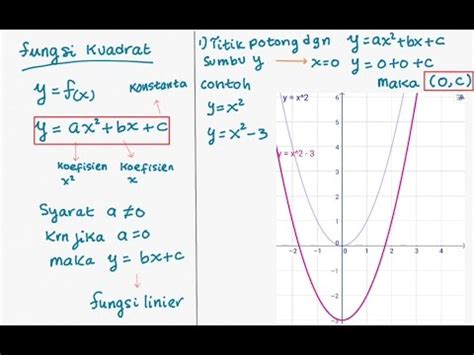 Fungsi Kuadrat
y = f(x)
Konstanta
y = ax² + bx + c
Koefisien x²
Koefisien x
Syarat a ≠ 0
krn jika a = 0
maka y = bx + c
fungsi linier
1) Titik potong dgn sumbu y → x=0
y = ax² + bx + c
y = 0 + 0 + c
maka (0, c)
contoh
y = x²
y = x² - 3
y = x^2
y = x^2 - 3
6
5
4
3
2
1
0
-1
-2
-3
-2 -1 0 1 2 3 4